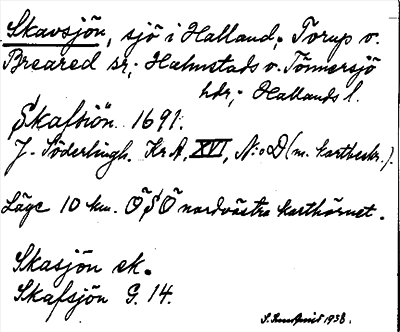 Skavsjön, sjö i Halland; Torup o.
Breared sr; Halmstads o. Tönnersjö
hdr; Hallands l.
Skafsiön 1691.
J. Söderlingh. Kr A, XVI, N:o D (m. kartbeskr.).
Läge 10 km. OSO nordvästra karthörnet.
Skasjön ek.
Skafsjön G. 14.
1938.